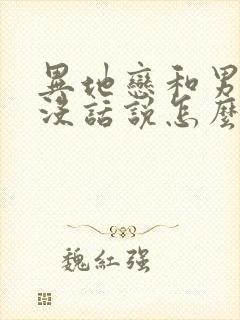 異地戀和男
沒話說怎麼
魏紅强